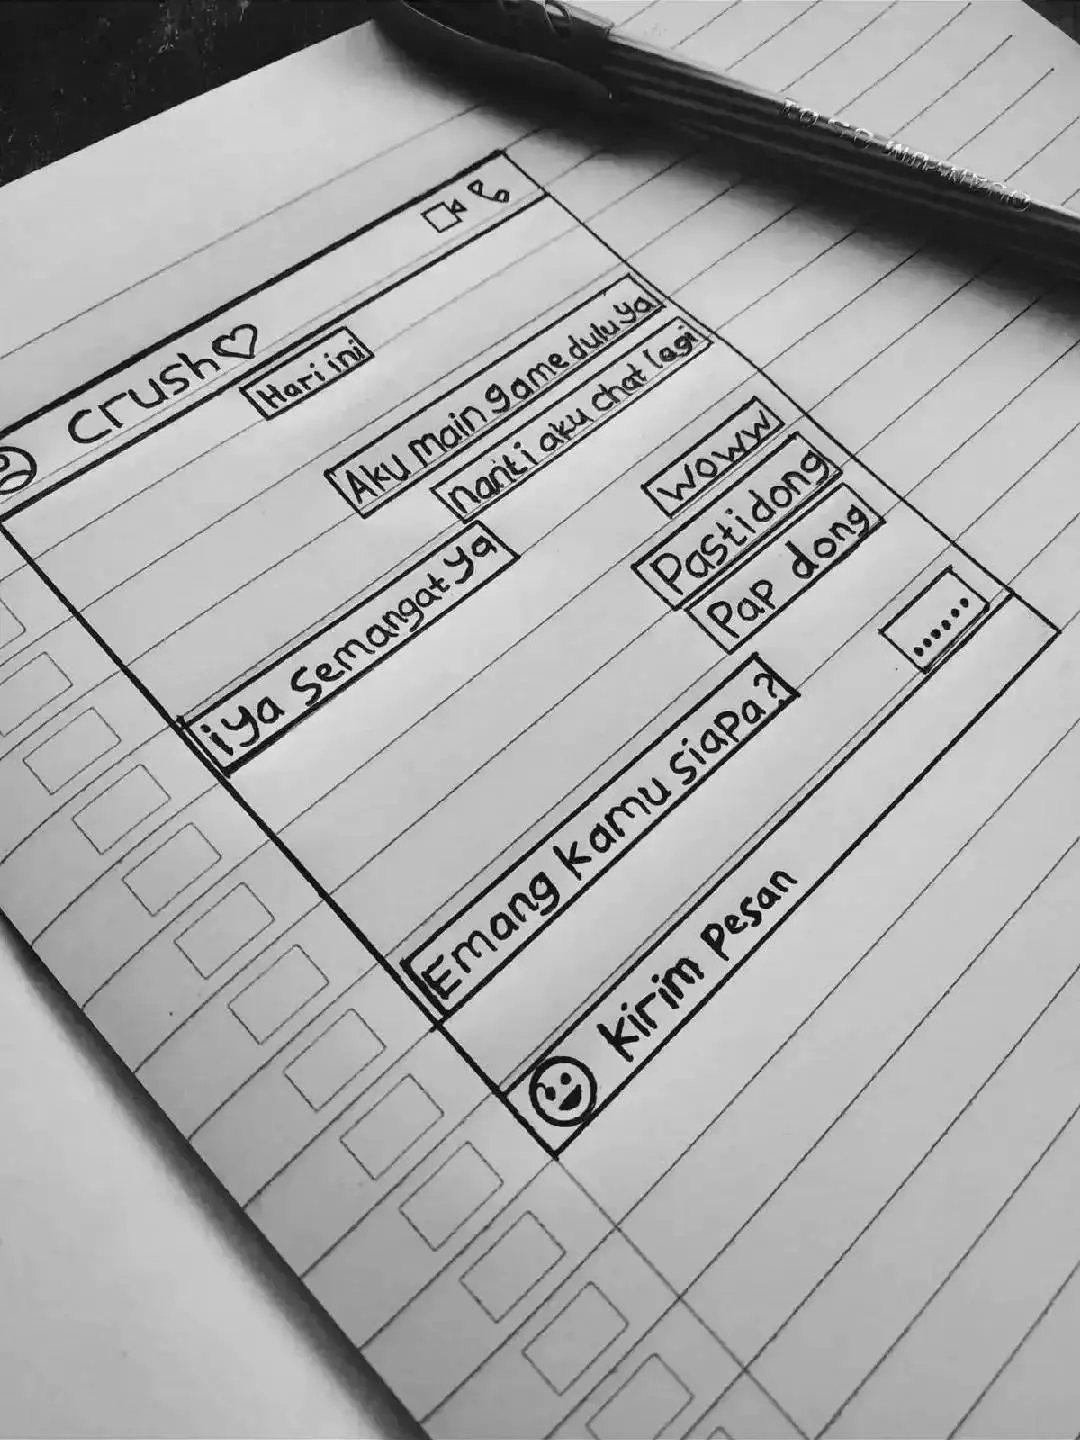 Crush♡
Hari ini
Aku main game dulu ya
nanti aku chat lagi
iya semangat ya
woww
Pasti dong
Pap dong
Emang kamu siapa?
......
Kirim Pesan